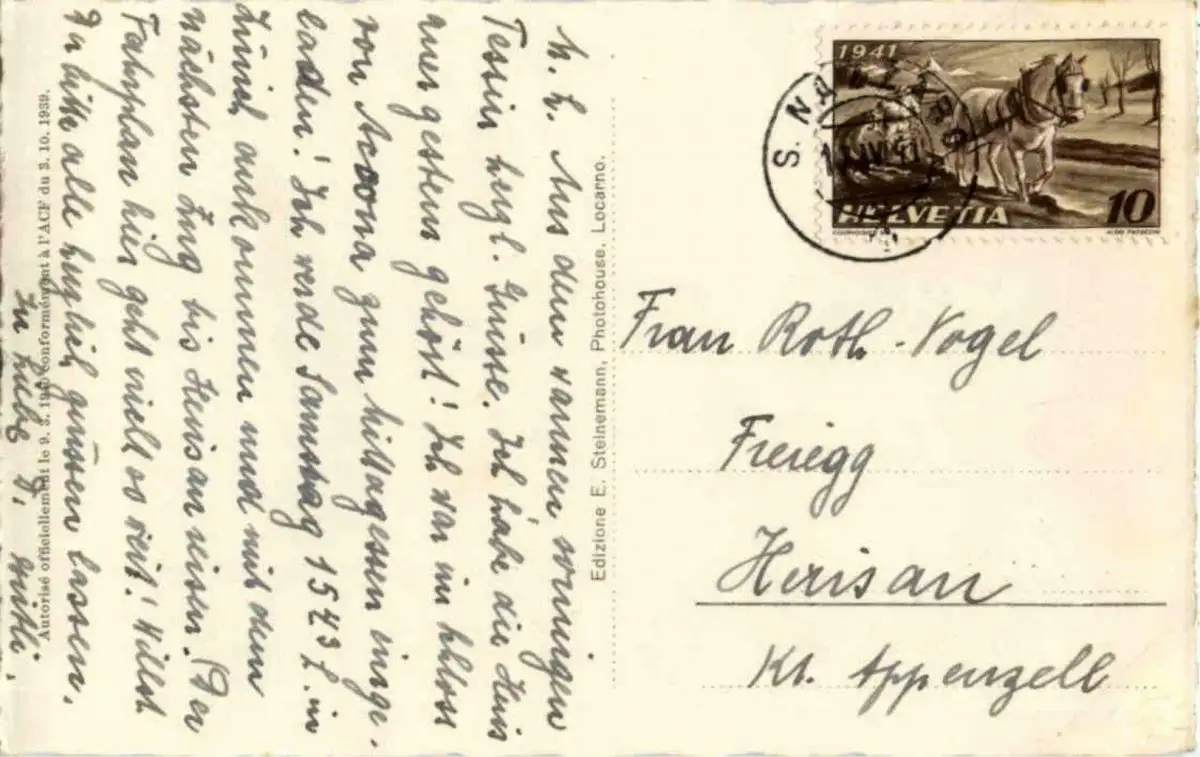 L. L. Aus dem warmen sonnigen
Tessin herzl. Grüsse. Ich habe die Heris
auer gestern gehört! Ich war im Schloss
von Ascona zum Mittagessen einge-
laden! Ich werde Samstag 15 43 h. in
Zürich ankommen und mit dem
nächsten Zug bis Herisau reisen. (Der
Fahrplan hier geht nicht so weit! Willst
Du bitte alle herzlich grüssen lassen.
In Liebe
Autorisé officiellement le 9. 3. 1940 conformément à l'ACF du 3. 10. 1939.
Edizione E. Steinemann, Photohouse, Locarno.
1941
S. N
HELVETIA
10
Frau Roth-Vogel
Freiegg
Herisau
Kt. Appenzell